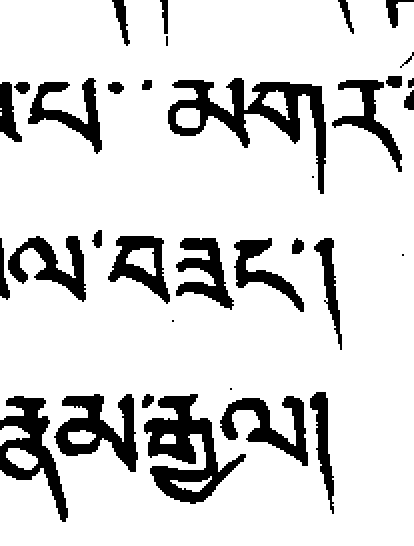 པ་ མགར
ལ་བཟང་།
རྣམ་རྒྱལ།